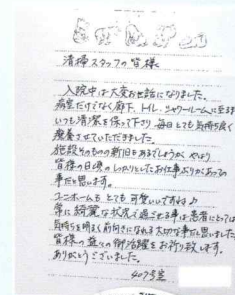 清掃スタッフの皆様へ
入院中は大変お世話になりました。
病室だけでなく廊下、トイレ、シャワールームに至るまで
いつも清潔を保って下さり、毎日とても気持ち良く
療養させていただきました。
施設そのものの新旧もあるでしょうが、やはり
皆様の日頃のしっかりとしたお仕事ぶりがあっての
事だと思います。
ユニホームもとても可愛いいですね♪
常に綺麗な状況で過ごせる事は患者にとっては
気持ちを明るく前向きになれる大切な事だと思いました。
皆様の益々の御活躍をお祈り致します。
ありがとうございました。
407号室